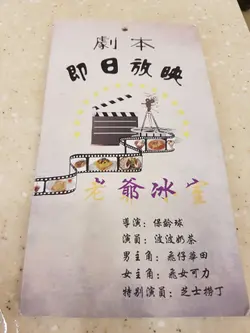 劇本
即日放映
老爺冰室
導演：保齡球
演員：波波奶茶
男主角：飛仔華田
女主角：飛女可力
特別演員：芝士撈丁